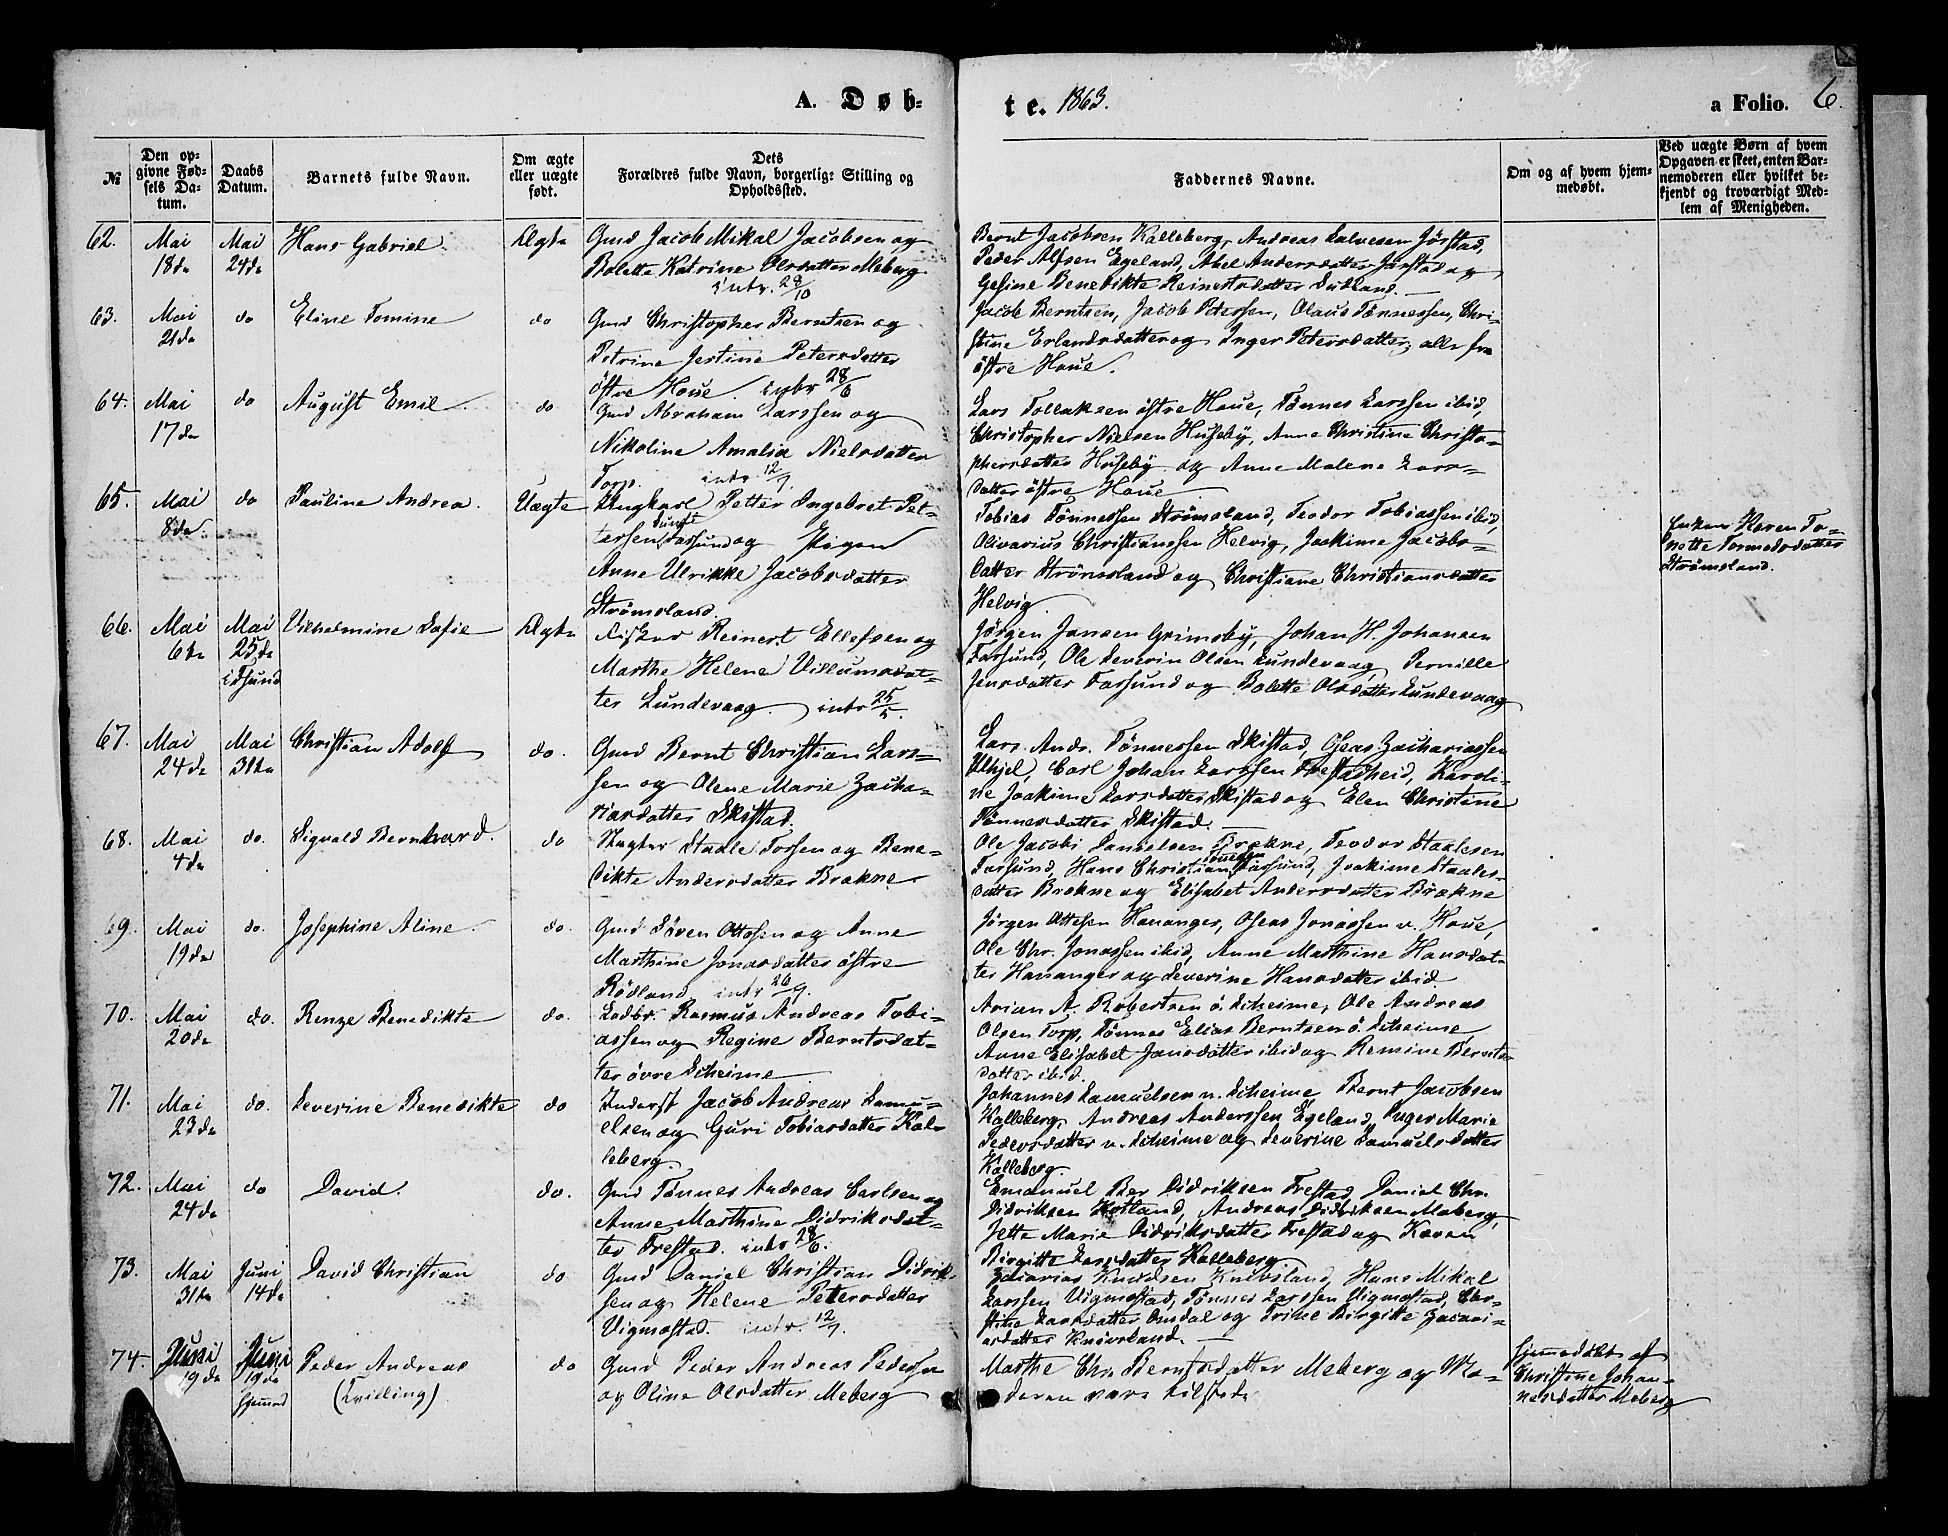 A. Døb-
te. 1863.
a Folio. 6.
№
Den op-
givne Fød-
sels Da-
tum.
Daabs
Datum.
Barnets fulde Navn.
Om ægte
eller uægte
født.
Dets
Forældres fulde Navn, borgerlige Stilling og
Opholdssted.
Faddernes Navne.
Om og af hvem hjem-
medøbt.
Ved uægte Børn af hvem
Opgaven er skeet, enten Bar-
nemoderen eller hvilket be-
kjendt og troværdigt Med-
lem af Menigheden.
62.
Mai
18de
Mai
24de
Hans Gabriel
Ægte
Gmd Jacob Mikal Jacobsen og
Bolette Katrine Olsdatter Meberg
intr. 28/10
Bernt Jacobsen Kalleberg, Andreas Salvesen Jørstad,
Peder Alfsen Egeland, Abel Andersdatter Jørstad og
Gesine Benedikte Reinertsdatter
63.
Mai
21de
do
Eline Tomine
do
Gmd Christopher Berntsen og
Petrine Jestine Petersdatter
östre Houe. intr 28/6
Jacob Berntsen, Jacob Petersen, Olaus Tønnessen, Chri-
stine Erlandsdatter og Inger Petersdatter, alle fra
östre Houe.
64.
Mai
17de
do
August Emil
do
Gmd Abraham Larssen og
Nikoline Amalia Nielsdatter
Torp. intr. 12/7.
Lars Tollaksen östre Houe, Tønnes Larssen ibid,
Christopher Nielsen Huseby, Anne Christine Christo-
phersdatter Huseby og Anne Malene Lars-
datter östre Houe
65.
Mai
8de
do
Pauline Andrea.
Uægte
Ungkarl Petter Ingebret Pet-
tersen Farsund og Pigen
Anne Ulrikke Jacobsdatter
Strømsland
Tobias Tønnessen Strømsland, Teodor Tobiassen ibid,
Olivarius Christianssen Helvig, Joakime Jacobs-
datter Strømsland og Christiane Christiansdatter
Helvig.
Enken Karen To-
nette Tormodsdatter
Strømsland.
66.
Mai
6te
Mai
25de
i Fsund
Vilhelmine Sofie
Ægte
Fisker Reinert Ellefsen og
Marthe Helene Villumsdat-
ter Lundevaag. intr 25/5.
Jørgen Jansen Grimsby, Johan H. Johansen
Farsund, Ole Severin Olsen Lundevaag, Pernille
Jensdatter Farsund og Bolette Olsdatter Lundevaag
67.
Mai
24de
Mai
31te
Christian Adolf
do.
Gmd Bernt Christian Lars-
sen og Olene Marie Zacha-
riasdatter Skistad.
Lars Andr. Tønnessen Skistad, Oseas Zachariassen
Ulhjel, Carl Johan Larssen Frestadheid, Karoli-
ne Joakime Larsdatter Skistad og Elen Christine
Tønnesdatter Skistad.
68.
Mai
4de
do.
Sigvald Bernhard.
do
Staale Torsen og Bene-
dikte Andersdatter Brækne
Ole Jacobi Danielsen Brækne, Teodor Staalesen
Farsund, Hans Christian Farsund, Joakime Staales-
datter Brækne og Elisabet Andersdatter Brækne
69.
Mai
19de
do.
Josephine Aline.
do.
Gmd Søren Ottesen og Anne
Marthine Jonasdatter östre
Rödland intr 26/7.
Jørgen Ottesen Hananger, Oseas Jonassen v. Houe,
Ole Chr. Jonassen ibid, Anne Marthine Hansdat-
ter Hananger og Severine Hansdatter ibid
70.
Mai
20de
do.
Renze Benedikte
do.
Lodbr. Rasmus Andreas Tobi-
assen og Regine Berntsdat-
ter övre Skeime
Arian A. Robertsen ö. Skeime, Ole Andreas
Olsen Torp, Tønnes Elias Berntsen ö. Skeime,
Anne Elisabet Jansdatter ibid og Remine Bernts-
datter ibid.
71.
Mai
23de
do.
Severine Benedikte
do
Inderst Jacob Andreas Samu-
elsen og Guri Tobiasdatter Kal-
leberg.
Johannes Samuelsen n. Skeime, Bernt Jacobsen
Kalleberg, Andreas Anderssen Egeland, Inger Marie
Pedersdatter n. Skeime og Severine Samuelsdatter
Kalleberg.
72.
Mai
24de
do
David.
do.
Gmd Tønnes Andreas Carlsen og
Anne Marthine Didriksdat-
ter Frestad. intr 28/6.
Emanuel Ber Didriksen Frestad, Daniel Chr.
Didriksen, Andreas Didriksen Meberg,
Jette Marie Didriksdatter Frestad og Karen
Birgitte Larsdatter Kalleberg.
73.
Mai
31te
Juni
14de
David Christian
do
Gmd Daniel Christian Didrik-
sen og Helene Petersdatter
Vigmostad. intr. 12/7.
Zacarias Knudsen Knivsland, Hans Mikal
Larssen Vigmostad, Tønnes Larssen Vigmostad, Chri-
stine Larsdatter Omdal og Trine Birgitte Zacari-
asdatter Knivsland.
74.
Juni
19de
Juni
19de
hjemmed
Peder Andreas
(Tvilling)
do
Gmd Peder Andreas Pedersen
og Oline Olsdatter Meberg
Marthe Chr. Berntsdatter Meberg og Mo-
deren vare tilstede
Hjemmedöbt af
Christine Johan-
nesdatter Meberg